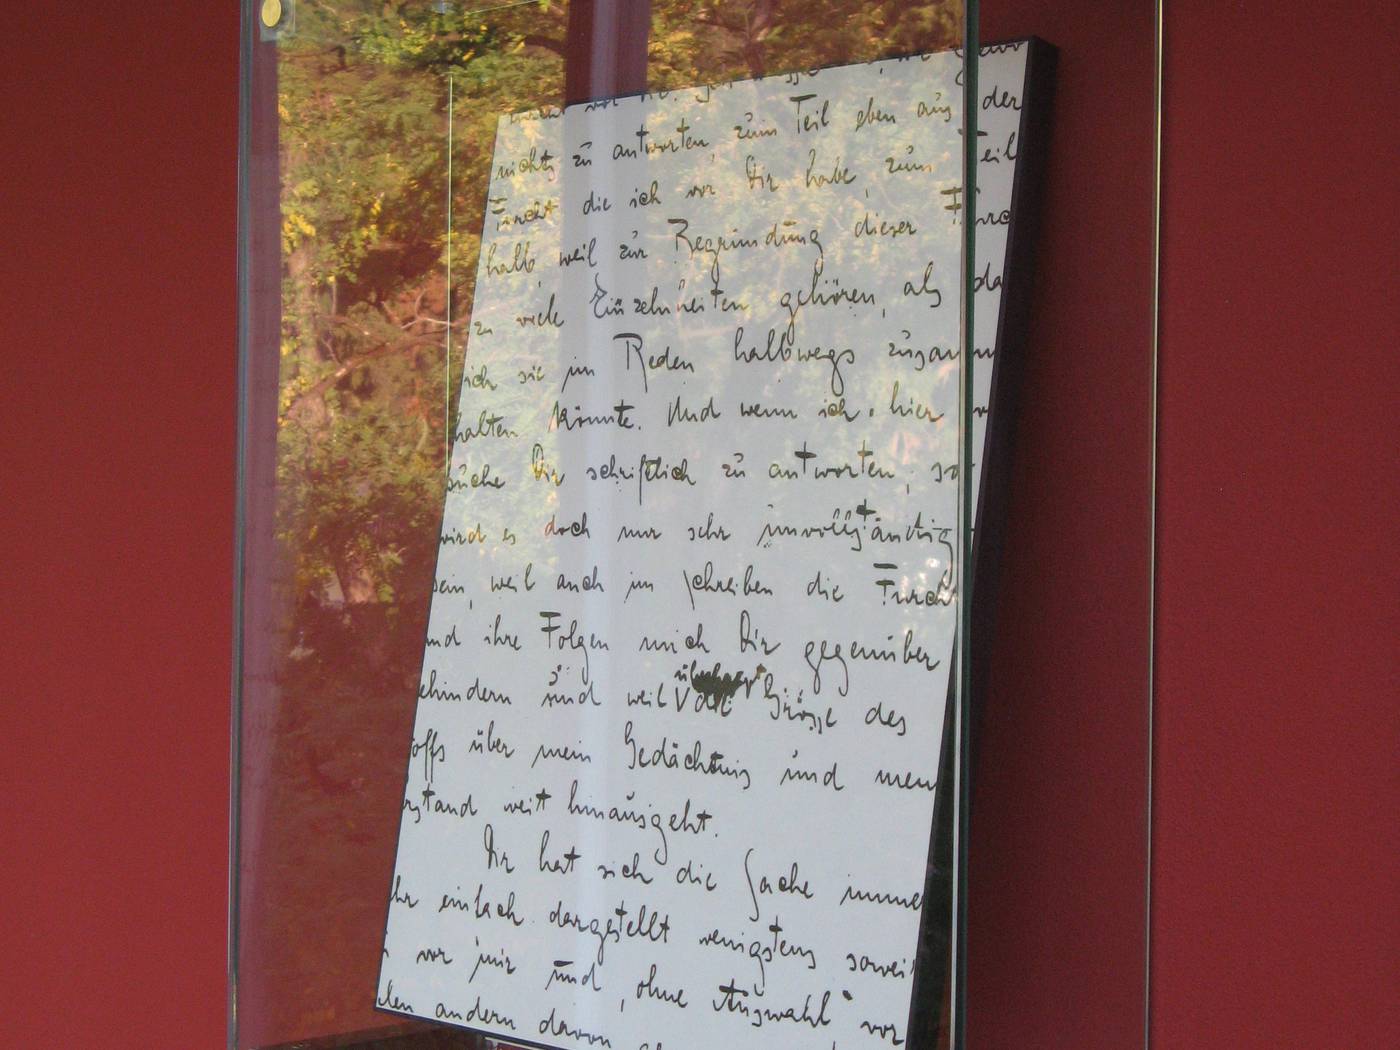 nichts zu antworten, zum Teil eben aus der
Furcht die ich vor Dir habe, zum Teil
halb weil zur Begründung dieser Furc
zu viele Einzelnheiten gehören, als da
ich sie im Reden halbwegs zusam
halten könnte. Und wenn ich hier
suche Dir schriftlich zu antworten, so
wird es doch nur sehr unvollständig
sein, weil auch im Schreiben die Furcht
und ihre Folgen mich Dir gegenüber
ehindern und weil die Grösse des
offs über mein Gedächtnis und mein
rstand weit hinausgeht.
Dir hat sich die Sache imme
hr einfach dargestellt wenigstens soweit
vor mir und, ohne Auswahl vor
len andern davon